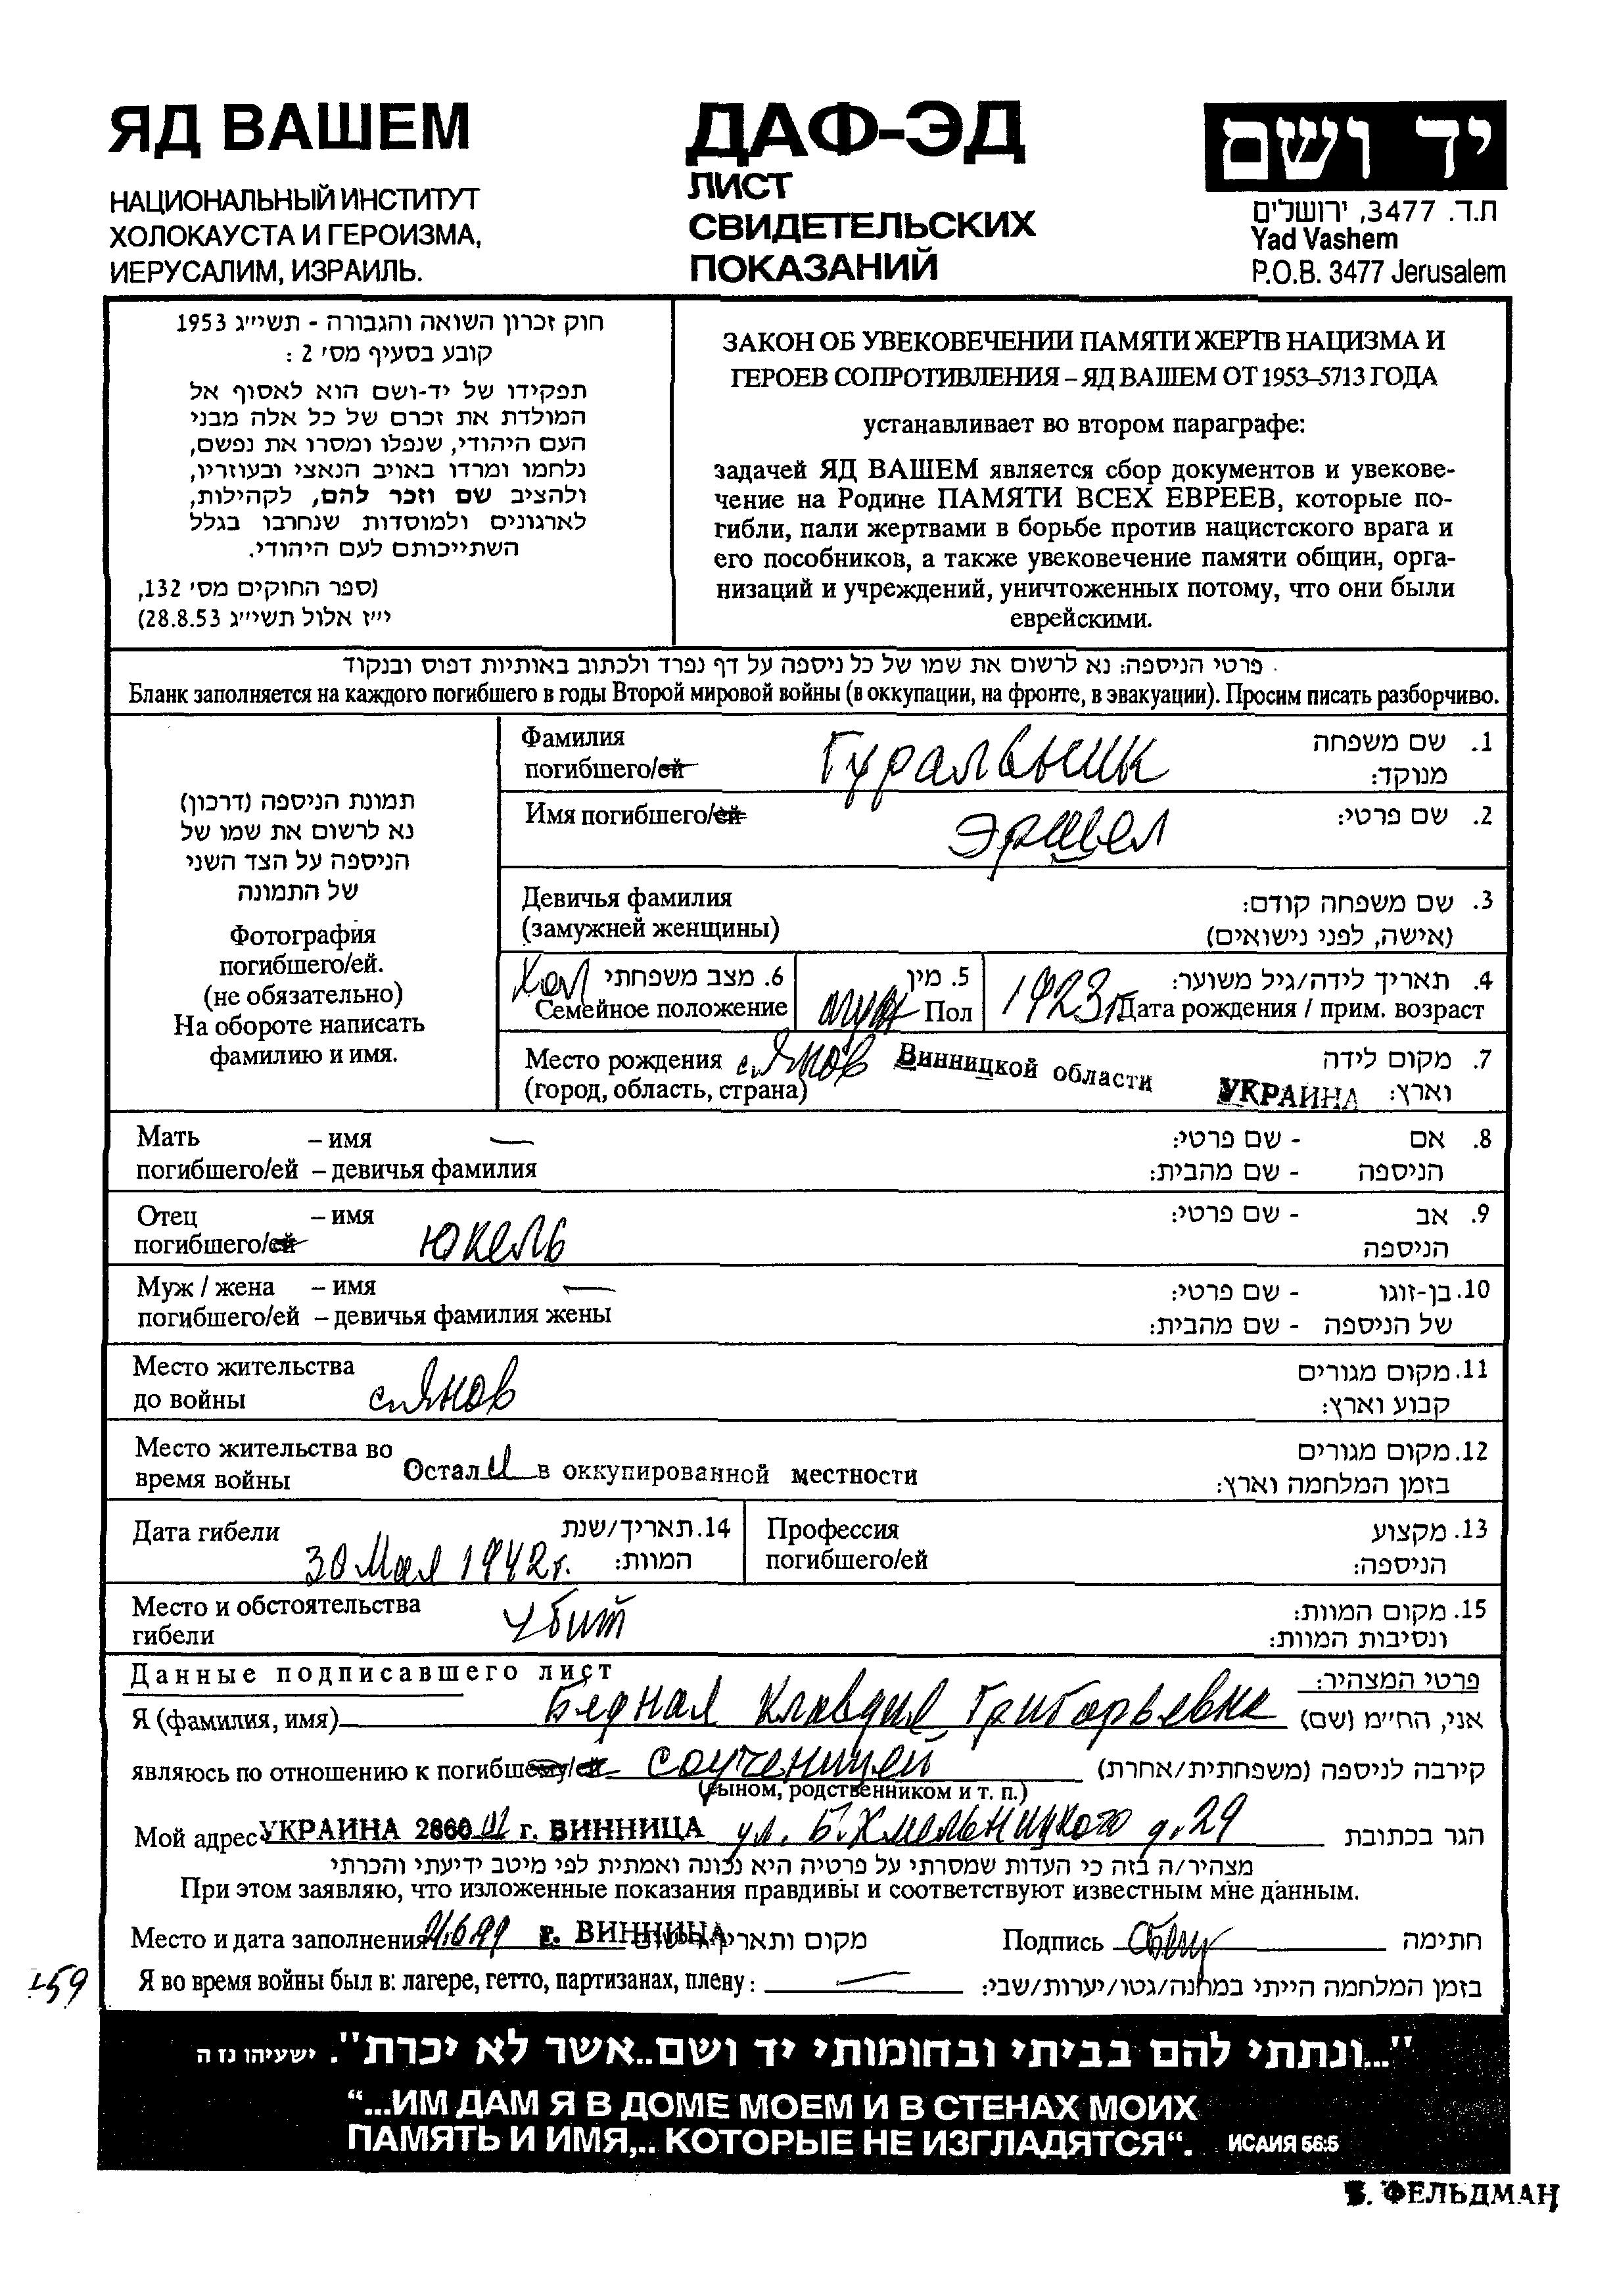 ЯД ВАШЕМ
НАЦИОНАЛЬНЫЙ ИНСТИТУТ
ХОЛОКАУСТА И ГЕРОИЗМА,
ИЕРУСАЛИМ, ИЗРАИЛЬ.
ДАФ-ЭД
ЛИСТ
СВИДЕТЕЛЬСКИХ
ПОКАЗАНИЙ
יד ושם
ת.ד. 3477, ירושלים
Yad Vashem
P.O.B. 3477 Jerusalem
חוק זכרון השואה והגבורה - תשי״ג 1953
קובע בסעיף מס׳ 2 :
תפקידו של יד-ושם הוא לאסוף אל
המולדת את זכרם של כל אלה מבני
העם היהודי, שנפלו ומסרו את נפשם,
נלחמו ומרדו באויב הנאצי ובעוזריו,
ולהציב שם וזכר להם, לקהילות,
לארגונים ולמוסדות שנחרבו בגלל
השתייכותם לעם היהודי.
(ספר החוקים מס׳ 132,
י״ז אלול תשי״ג 28.8.53)
ЗАКОН ОБ УВЕКОВЕЧЕНИИ ПАМЯТИ ЖЕРТВ НАЦИЗМА И
ГЕРОЕВ СОПРОТИВЛЕНИЯ – ЯД ВАШЕМ ОТ 1953–5713 ГОДА
устанавливает во втором параграфе:
задачей ЯД ВАШЕМ является сбор документов и увекове-
чение на Родине ПАМЯТИ ВСЕХ ЕВРЕЕВ, которые по-
гибли, пали жертвами в борьбе против нацистского врага и
его пособников, а также увековечение памяти общин, орга-
низаций и учреждений, уничтоженных потому, что они были
еврейскими.
פרטי הניספה: נא לרשום את שמו של כל ניספה על דף נפרד ולכתוב באותיות דפוס ובנקוד
Бланк заполняется на каждого погибшего в годы Второй мировой войны (в оккупации, на фронте, в эвакуации). Просим писать разборчиво.
תמונת הניספה (דרכון)
נא לרשום את שמו של
הניספה על הצד השני
של התמונה
Фотография
погибшего/ей.
(не обязательно)
На обороте написать
фамилию и имя.
Фамилия Гуральник 1. שם משפחה
погибшего/ей מנוקד:
Имя погибшего/ей Эршел 2. שם פרטי:
Девичья фамилия 3. שם משפחה קודם:
(замужней женщины) (אישה, לפני נישואים)
Хол 6. מצב משפחתי 5. מין 4. תאריך לידה/גיל משוער:
Семейное положение муж Пол 1923г Дата рождения / прим. возраст
Место рождения с. Янов Винницкой области 7. מקום לידה
(город, область, страна) УКРАИНА וארץ:
Мать – имя — 8. אם - שם פרטי:
погибшего/ей – девичья фамилия הניספה - שם מהבית:
Отец – имя 9. אב - שם פרטי:
погибшего/ей Юкель הניספה
Муж / жена – имя — 10. בן-זוגו - שם פרטי:
погибшего/ей – девичья фамилия жены של הניספה - שם מהבית:
Место жительства 11. מקום מגורים
до войны с. Янов קבוע וארץ:
Место жительства во 12. מקום מגורים
время войны Остался в оккупированной местности בזמן המלחמה וארץ:
Дата гибели 14. תאריך/שנת Профессия 13. מקצוע
30 Мая 1942г. המוות: погибшего/ей הניספה:
Место и обстоятельства Убит 15. מקום המוות:
гибели ונסיבות המוות:
Данные подписавшего лист פרטי המצהיר:
Я (фамилия, имя) Бедная Клавдия Григорьевна אני, הח״מ (שם)
являюсь по отношению к погибшему/ей соученицей קירבה לניספה (משפחתית/אחרת)
(сыном, родственником и т. п.)
Мой адрес УКРАИНА 2860 г. ВИННИЦА ул. Б. Хмельницкого д. 29 הגר בכתובת
מצהיר/ה בזה כי העדות שמסרתי על פרטיה היא נכונה ואמתית לפי מיטב ידיעתי והכרתי
При этом заявляю, что изложенные показания правдивы и соответствуют известным мне данным.
Место и дата заполнения г. ВИННИЦА מקום ותאריך Подпись חתימה
Я во время войны был в: лагере, гетто, партизанах, плену: — בזמן המלחמה הייתי במחנה/גטו/יערות/שבי:
-59
"...ונתתי להם בביתי ובחומותי יד ושם..אשר לא יכרת". ישעיהו נז ה
“...ИМ ДАМ Я В ДОМЕ МОЕМ И В СТЕНАХ МОИХ
ПАМЯТЬ И ИМЯ,.. КОТОРЫЕ НЕ ИЗГЛАДЯТСЯ“. ИСАИЯ 56:5
Б. ФЕЛЬДМАН